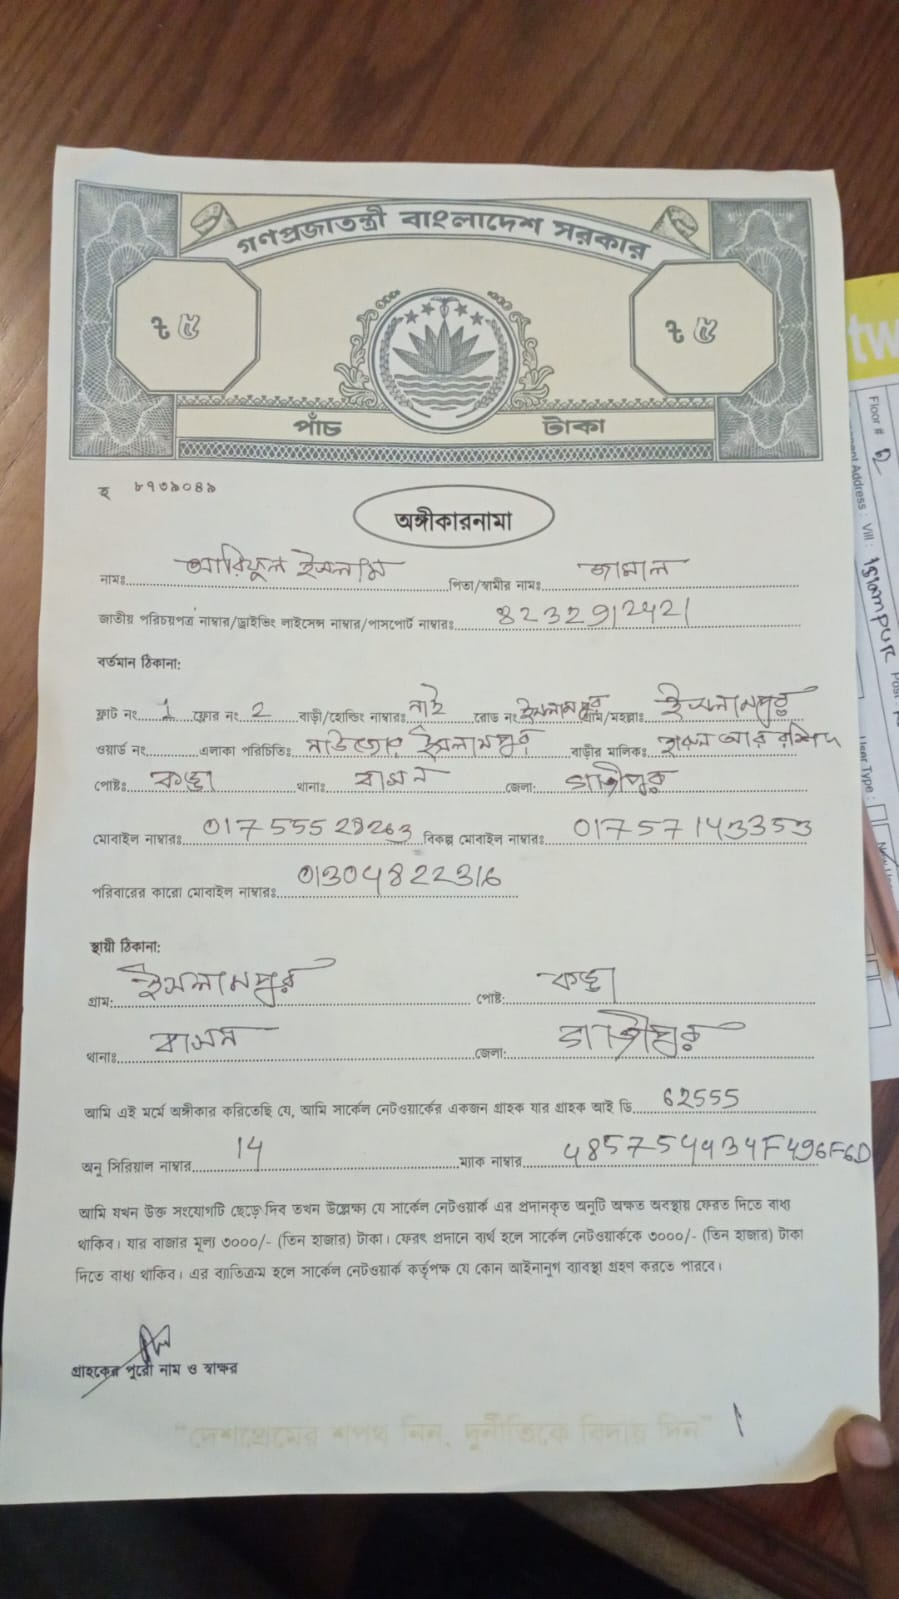 গণপ্রজাতন্ত্রী বাংলাদেশ সরকার
৳ ৫ ৳ ৫
পাঁচ টাকা
হ ৮৭৩৯০৪৯
অঙ্গীকারনামা
নামঃ আরিফুল ইসলাম পিতা/স্বামীর নামঃ জামাল
জাতীয় পরিচয়পত্র নাম্বার/ড্রাইভিং লাইসেন্স নাম্বার/পাসপোর্ট নাম্বারঃ 8232912421
বর্তমান ঠিকানা:
ফ্লাট নং 1 ফ্লোর নং 2 বাড়ী/হোল্ডিং নাম্বারঃ নাই রোড নং ইসলামপুর গ্রাম/মহল্লাঃ ইসলামপুর
ওয়ার্ড নং এলাকা পরিচিতিঃ ইসলামপুর বাড়ীর মালিকঃ হারুন আর রশিদ
পোষ্টঃ কড্ডা থানাঃ বাসন জেলা: গাজীপুর
মোবাইল নাম্বারঃ 01755528263 বিকল্প মোবাইল নাম্বারঃ 01757143353
পরিবারের কারো মোবাইল নাম্বারঃ 01304822316
স্থায়ী ঠিকানা:
গ্রাম: ইসলামপুর পোষ্ট: কড্ডা
থানাঃ বাসন জেলা: গাজীপুর
আমি এই মর্মে অঙ্গীকার করিতেছি যে, আমি সার্কেল নেটওয়ার্কের একজন গ্রাহক যার গ্রাহক আই ডি 62555
অনু সিরিয়াল নাম্বার 14 ম্যাক নাম্বার 485754434F496F6D
আমি যখন উক্ত সংযোগটি ছেড়ে দিব তখন উল্লেক্ষা যে সার্কেল নেটওয়ার্ক এর প্রদানকৃত অনুটি অক্ষত অবস্থায় ফেরত দিতে বাধ্য
থাকিব। যার বাজার মূল্য ৩০০০/- (তিন হাজার) টাকা। ফেরৎ প্রদানে ব্যর্থ হলে সার্কেল নেটওয়ার্ককে ৩০০০/- (তিন হাজার) টাকা
দিতে বাধ্য থাকিব। এর ব্যাতিক্রম হলে সার্কেল নেটওয়ার্ক কর্তৃপক্ষ যে কোন আইনানুগ ব্যাবস্থা গ্রহণ করতে পারবে।
গ্রাহকের পুরো নাম ও স্বাক্ষর
"দেশপ্রেমের শপথ নিন, দুর্নীতিকে বিদায় দিন"
tw
Floor # 2
Address : Vill : Islampur
User Type :